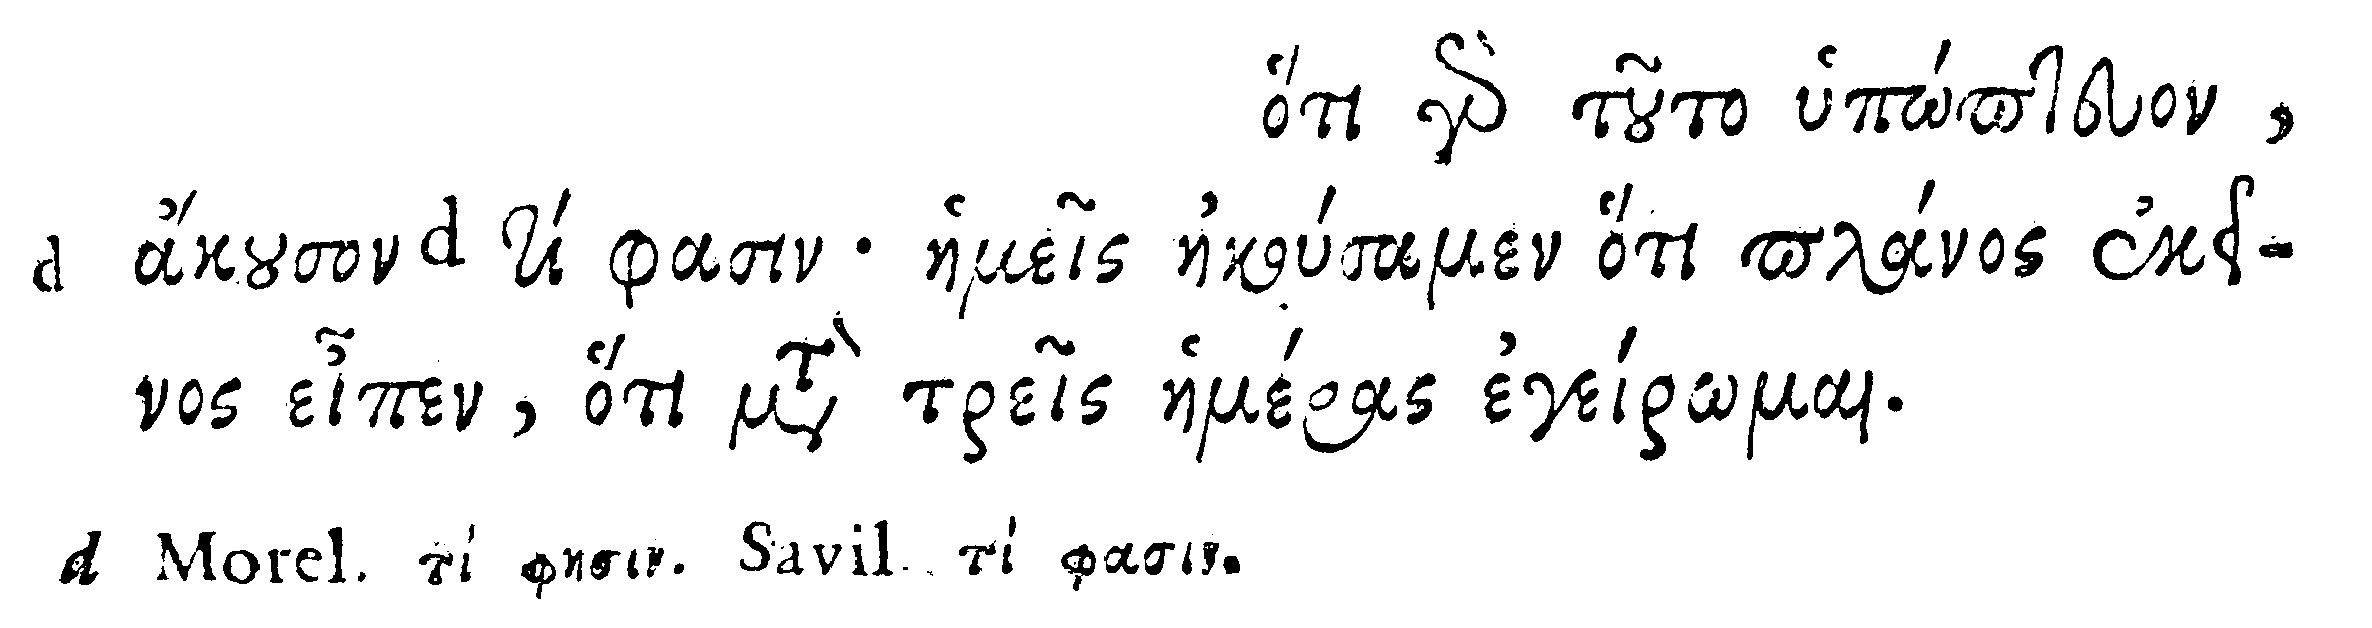 ὅτι γὰρ τοῦτο ὑπώπτευον,
d ἄκουσον d τί φασιν· ἡμεῖς ἠκούσαμεν ὅτι πλάνος ἐκεῖ-
νος εἶπεν, ὅτι μετὰ τρεῖς ἡμέρας ἐγείρωμαι.
d Morel. τί φησιν. Savil. τί φασιν.